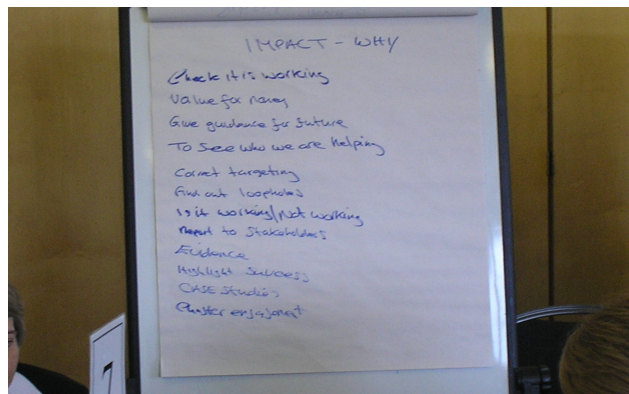 IMPACT - WHY
Check it is working
Value for money
Give guidance for future
To see who we are helping
Correct targeting
Find out loopholes
Is it working/not working
Report to Stakeholders
Evidence
Highlight Success
CASE Studies
Cluster engagement
7